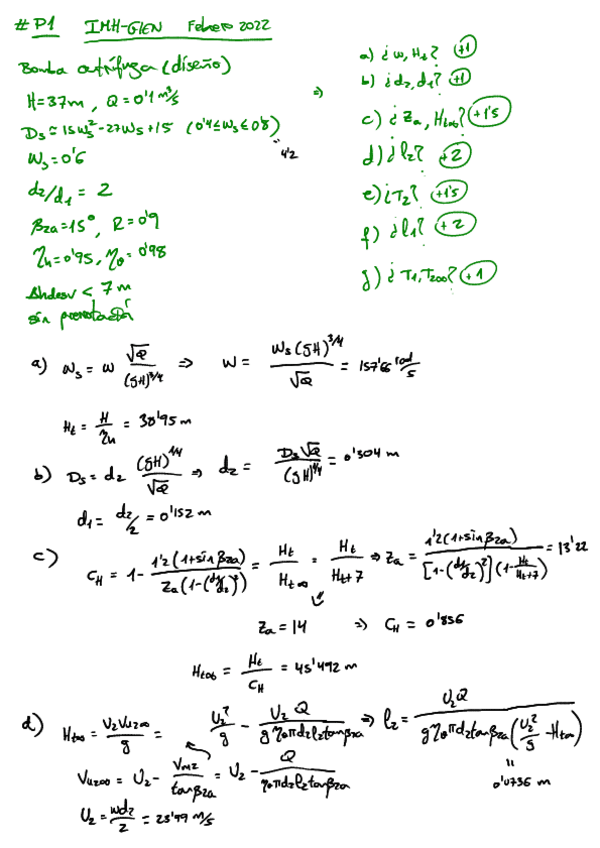 #P1 IMH-GIEN Febrero 2022
Bomba centrífuga (diseño)
H=37m, Q=0'1 m³/s
Ds ≈ 15ws² -27ws+15 (0'4≤ws≤0'8)
4'2
ws=0'6
d2/d1 = 2
β2a=15°, R=0'9
ηh=0'95, ηo=0'98
Δhdesv < 7 m
sin prerrotación
⇒
a) ¿w, Ht? +1
b) ¿d2, d1? +1
c) ¿Za, Ht∞? +1'5
d) ¿l2? +2
e) ¿T2? +1'5
f) ¿l1? +2
g) ¿T1, T2∞? +1
a) ws = w √Q/(gH)^3/4 ⇒ w = ws (gH)^3/4/√Q = 157'66 rad/s
Ht = H/ηh = 38'95 m
b) Ds = d2 (gH)^1/4/√Q ⇒ d2 = Ds√Q/(gH)^1/4 = 0'304 m
d1 = d2/2 = 0'152 m
c) CH = 1- 1'2(1+sinβ2a)/Za(1-(d1/d2)²) = Ht/Ht∞ = Ht/Ht+7 ⇒ Za = 1'2(1+sinβ2a)/[1-(d1/d2)²](1-Ht/Ht+7) = 13'22
Za = 14 ⇒ CH = 0'856
Ht∞ = Ht/CH = 45'492 m
d) Ht∞ = U2Vu2∞/g = U2²/g - U2 Q/gηoπd2l2tanβ2a ⇒ l2 = U2Q/gηoπd2tanβ2a(U2²/g - Ht∞)
Vu2∞ = U2 - Vm2/tanβ2a = U2 - Q/ηoπd2l2tanβ2a
" 0'0736 m
U2 = wd2/2 = 23'99 m/s